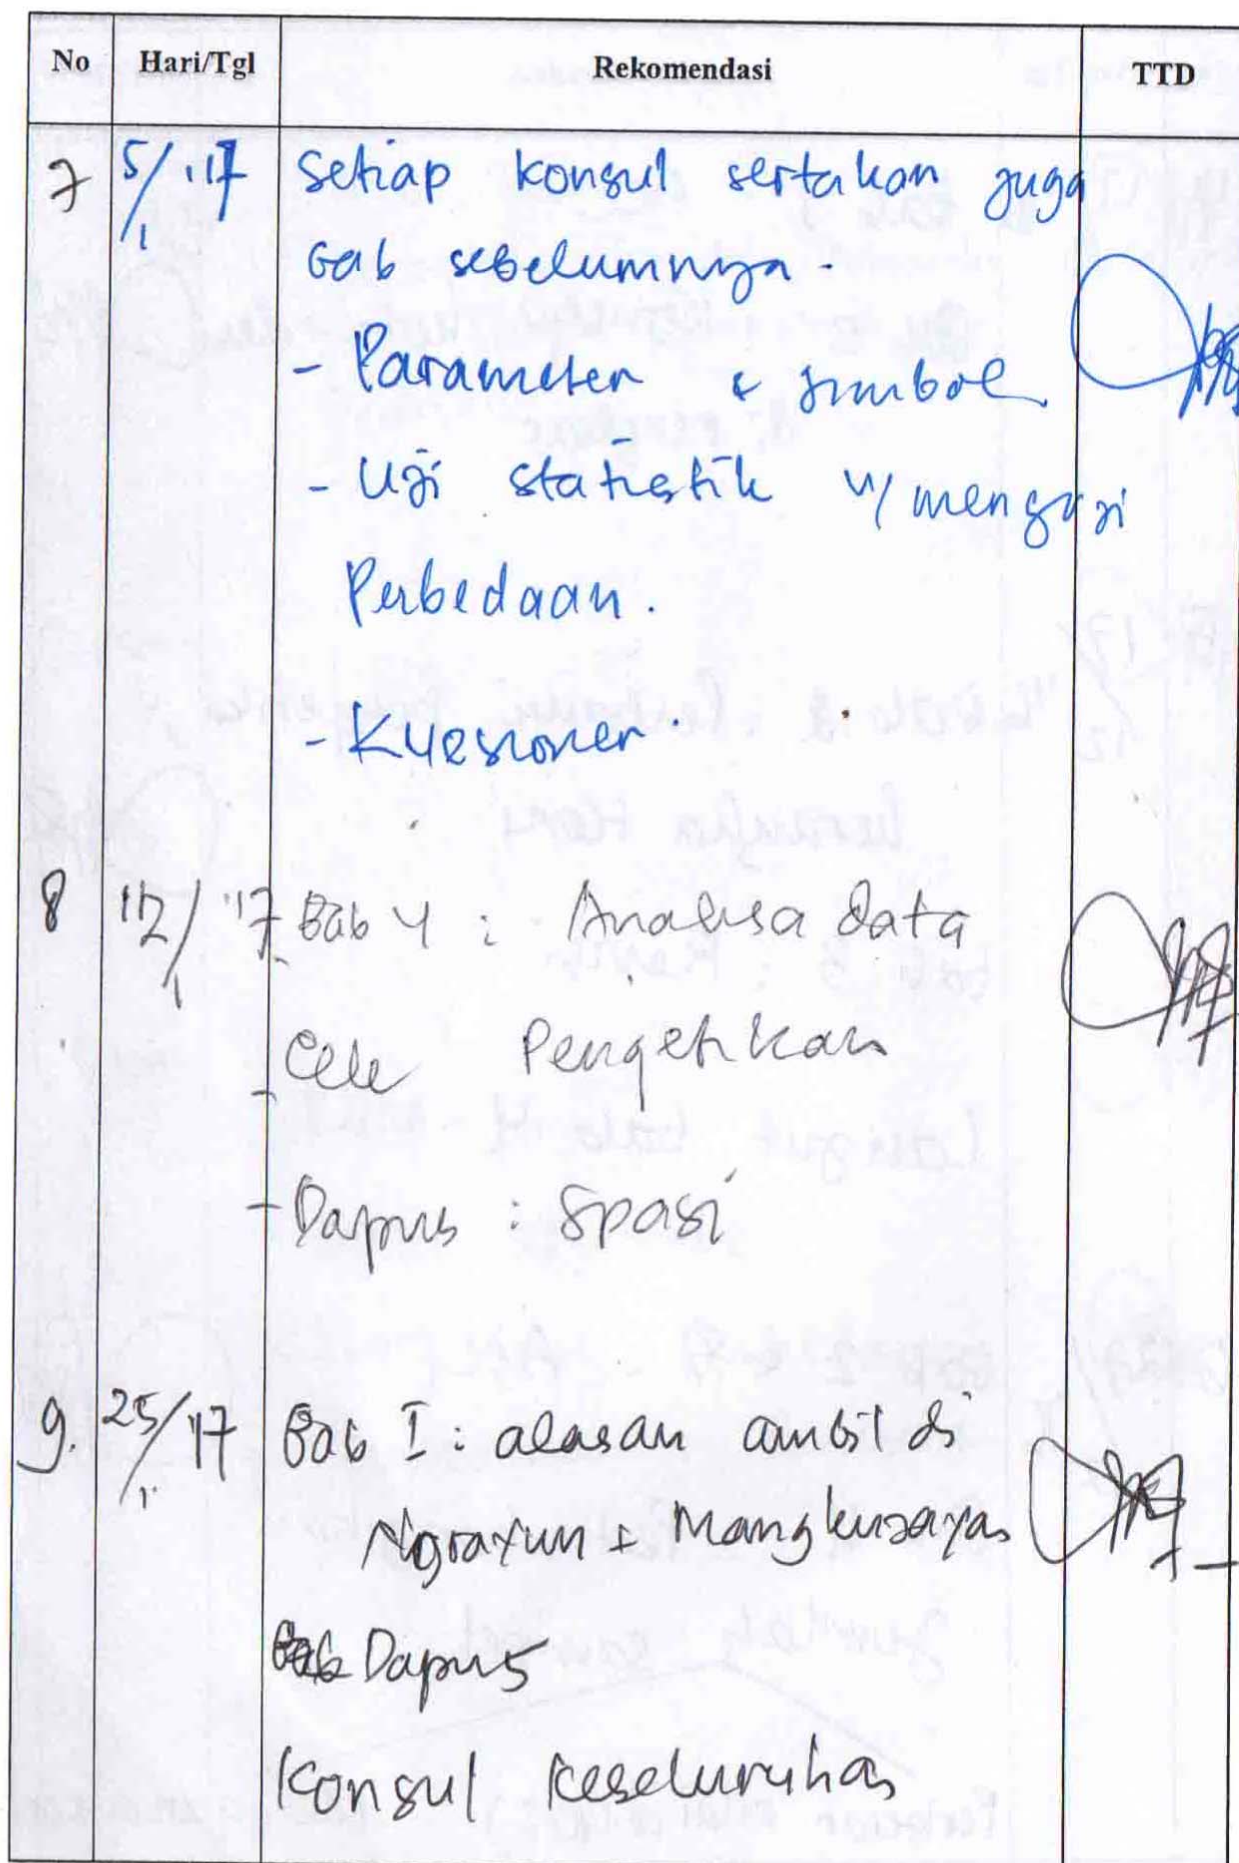 No Hari/Tgl Rekomendasi TTD
7 5/1 '17 Setiap konsul sertakan juga
bab sebelumnya.
- Parameter & simbol
- Uji statistik u/ menguji
Perbedaan.
- Kuesioner
8 12/1 '17 Bab 4 : Analisa data
- Cek Pengetikan
- Dapus : Spasi
9. 25/1 '17 Bab I : alasan ambil di
Ngrayun + Mangkujayan
Dapus
Konsul keseluruhan